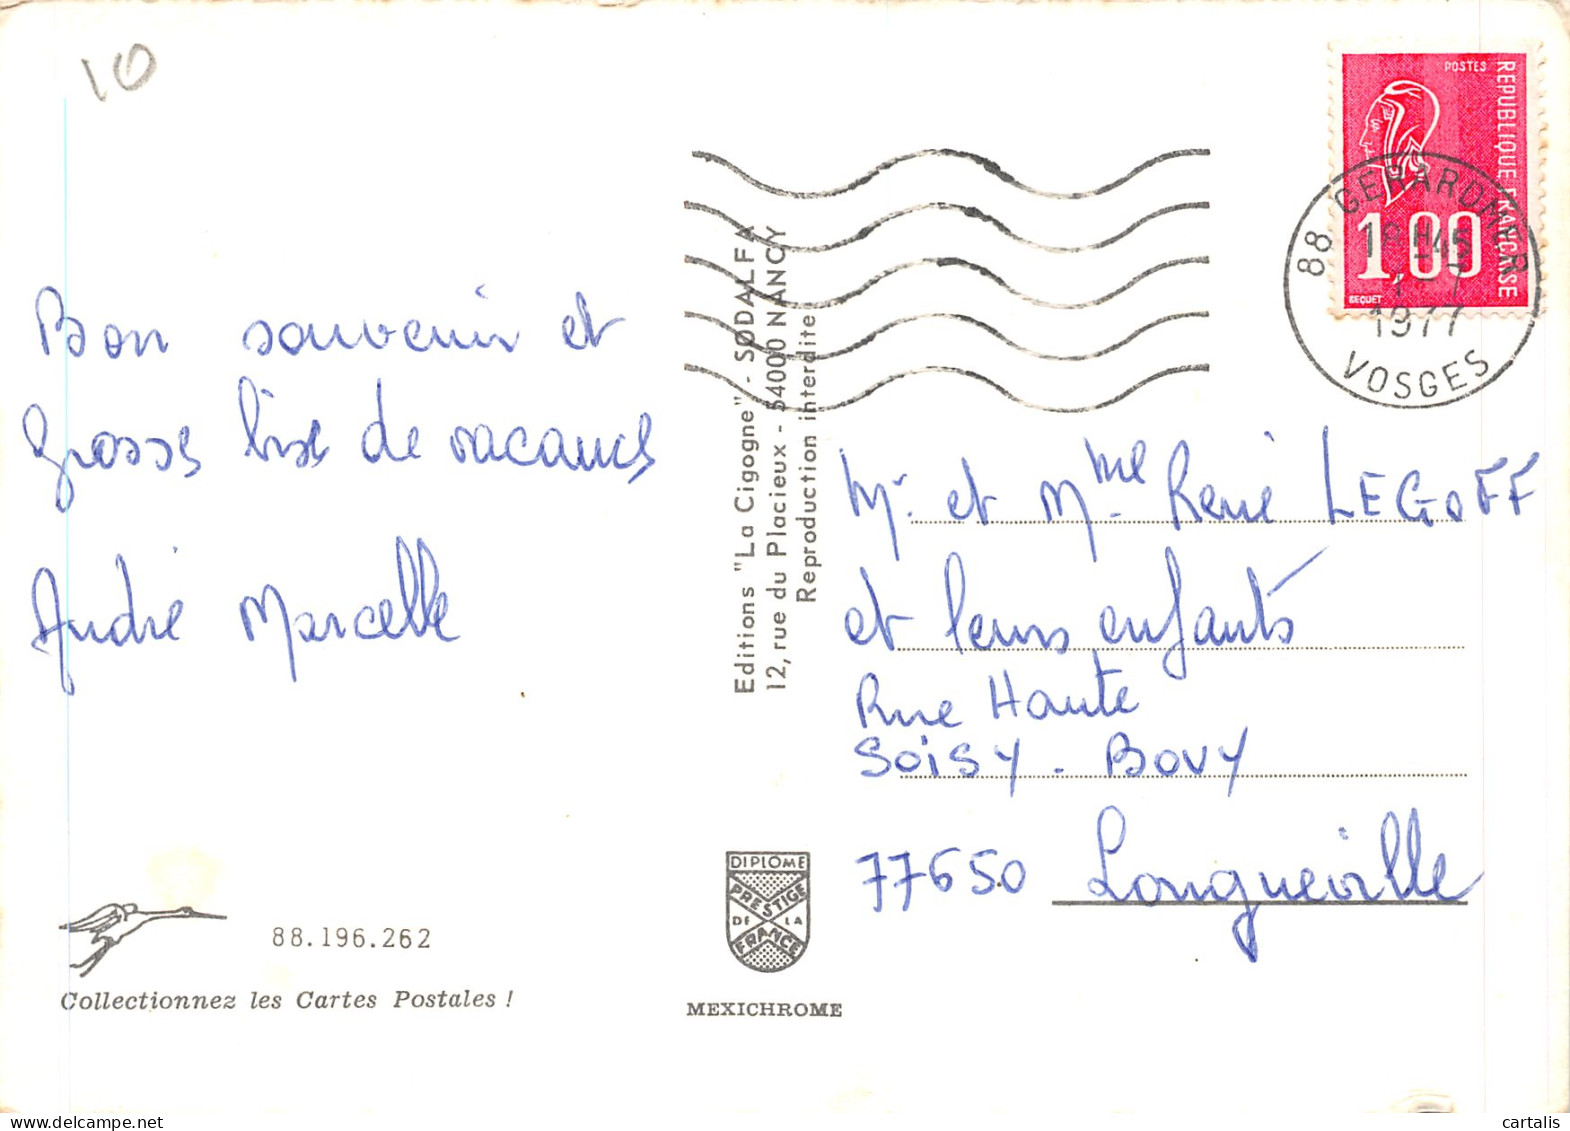 10
Bon souvenir et
Grosses bises de vacances
André Marcelle
88.196.262
Collectionnez les Cartes Postales !
Editions "La Cigogne" - SODALFA
12, rue du Placieux - 54000 NANCY
Reproduction interdite
DIPLOME
PRESTIGE
DE LA
FRANCE
MEXICHROME
POSTES
REPUBLIQUE FRANCAISE
1,00
BEQUET
88 GERARDMER
18H45
1977
VOSGES
Mr. et Mme René LEGOFF
et leurs enfants
Rue Haute
SOISY - BOUY
77650 Longueville
cartalis